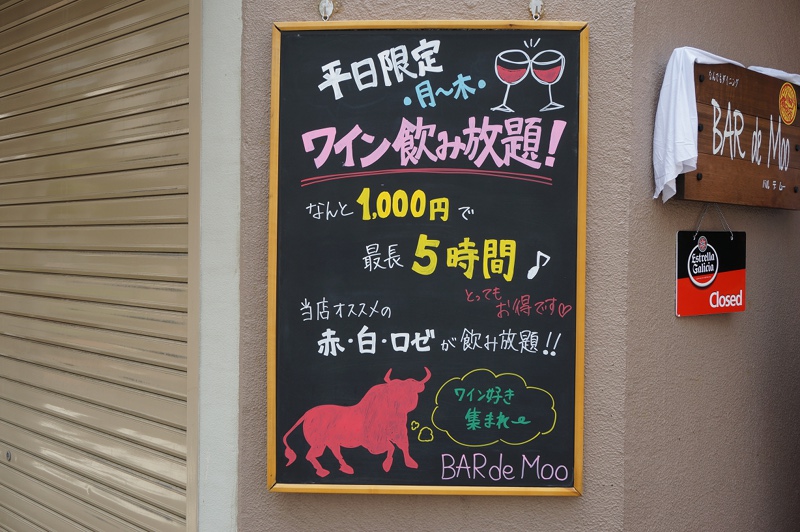 平日限定
・月～木・
ワイン飲み放題！
なんと1,000円で
最長5時間♪
とっても
お得です♡
当店オススメの
赤・白・ロゼが飲み放題!!
ワイン好き
集まれ～
BAR de Moo
なんでもダイニング
BAR de Moo
バル デ ムー
Estrella
Galicia
Closed